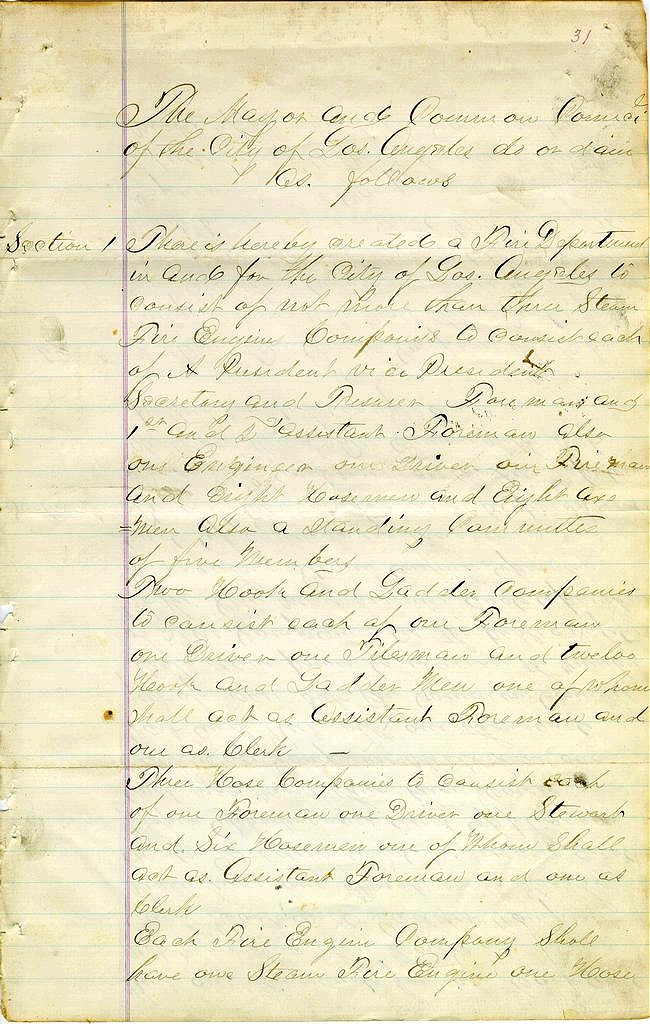 31
The Mayor and Common Council
of the City of Los. Angeles do ordain
as. follows
Section 1 There is hereby created a Fire Department
in and for the City of Los. Angeles to
consist of not more than three Steam
Fire Engine Companies to consist each
of A President vice President
Secretary and Foreman and
1st and 2d assistant Foreman also
one Engineer one Driver one Fireman
and Eight Hosemen and Eight axe
=men also a Standing Committee
of five Members
Two Hook and Ladder Companies
to consist each of one Foreman
one Driver one Tilesman and twelve
Hook and Ladder Men one of whom
shall act as Assistant Foreman and
one as. Clerk —
Three Hose Companies to Consist each
of one Foreman one Driver one Stewart
and. Six Hosemen one of Whom Shall
act as. Assistant Foreman and one as
Clerk
Each Fire Engine Company Shall
have one Steam Fire Engine one Hose